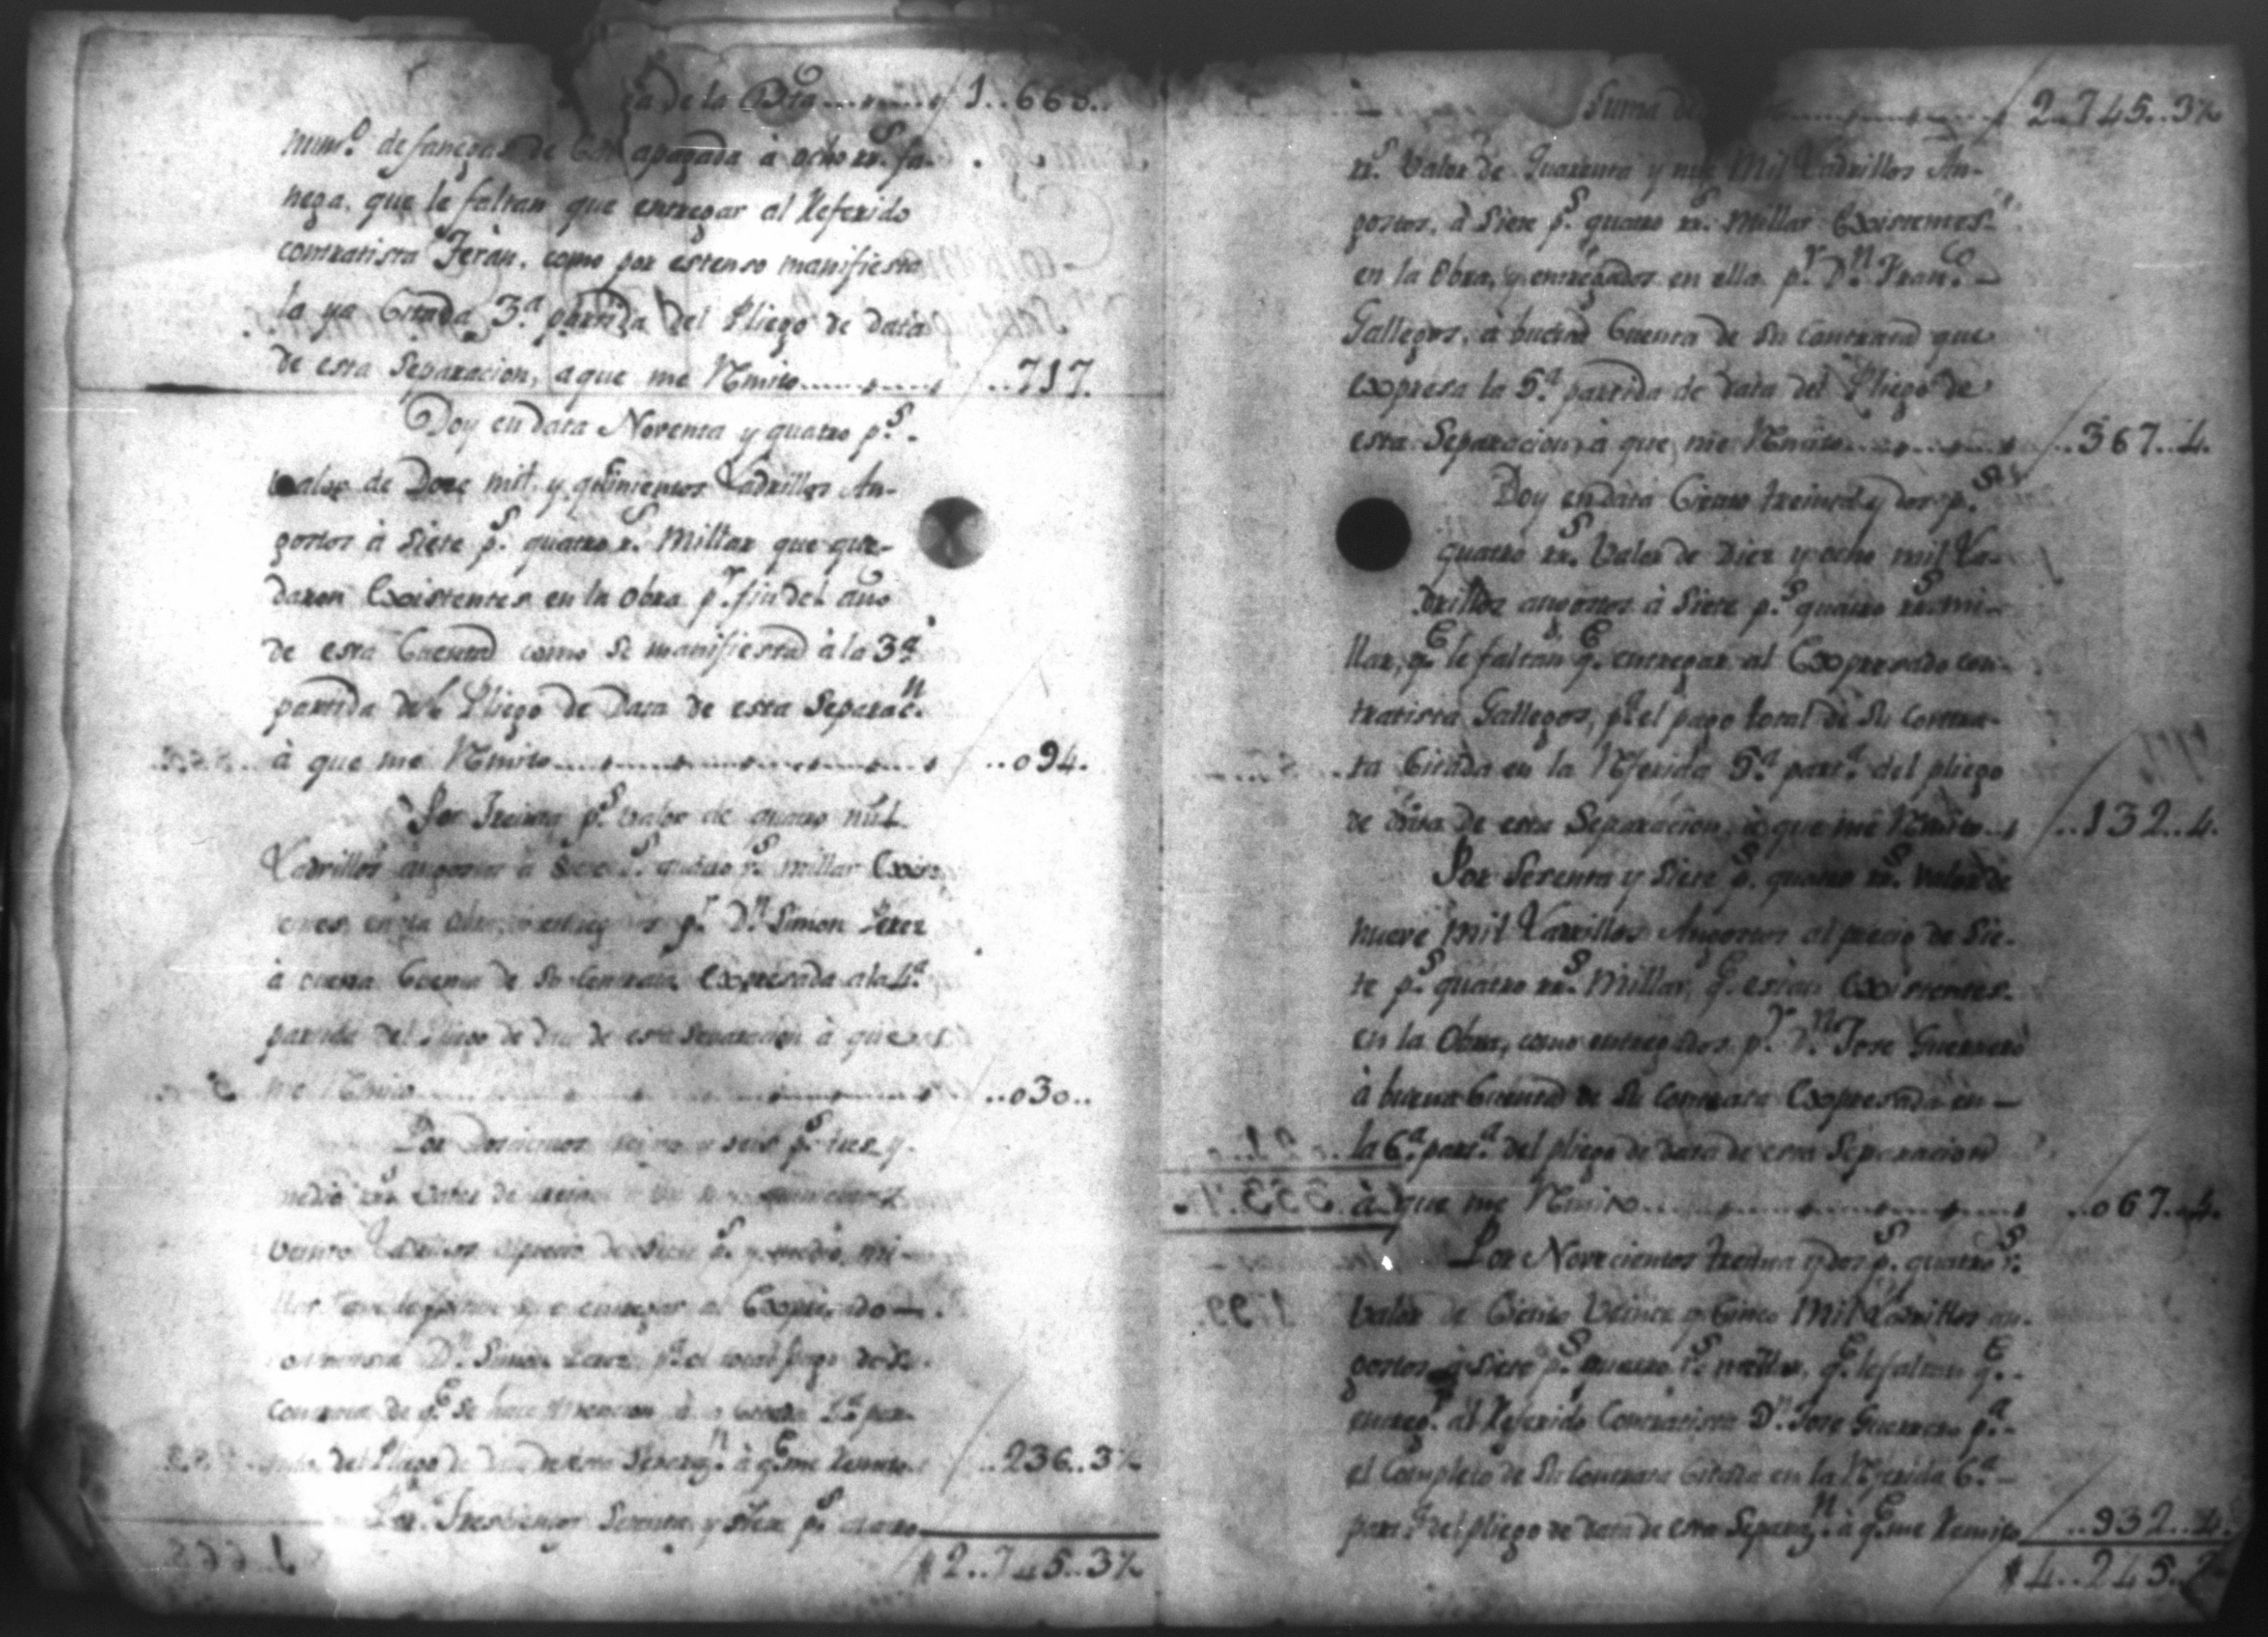 de la Bta 1..668..
num.º de fanegas de Cal apagada à ocho rr.s fa-
nega, que le faltan que entregar al Referido
contratista Teràn, como por estenso manifiesta
la ya Citada 3.a partida del Pliego de data
de esta Separacion, a que me Rmito ..717.
Doy en data Noventa y quatro p.s
valor de Doze mil y quinientos Ladrillos An-
gostos à Siete p.s quatro r.s Millar que que-
daron Existentes en la Obra p.r fin del año
de esta Cuenta como se manifiesta à la 3.a
partida del Pliego de Data de esta Separac.n
à que me Rmito ..094.
Por Treinta p.s valor de quatro mil
Ladrillos angostos à Siete p.s quatro r.s millar Exis-
p.r D.n Simon Perez
à buena Cuenta de Su Contrata Expresada a la 4.a
partida del Pliego de Data de esta Separacion à que
me Rmito ..030..
Por Doscientos treinta y seis p.s tres y
medio rr.s valor de
Ladrillos al precio de Siete p.s y medio mi-
llar que le faltan que entregar al Expresado
contratista D.n Simon Perez, p.a el total pago de Su
Contrata de q.e Se hace mencion à la Citada 4.a par-
tida del Pliego de Data de esta Separaz.n à q.e me Remito ..236..3½
Por Trescientos Sesenta y Siete p.s quatro
$2..745..3½
Suma de 2..745..3½
rr.s Valor de Quarenta y nueve Mil Ladrillos An-
gostos, à Siete p.s quatro rr.s Millar Existentes
en la Obra, y entregados en ella p.r D.n Fran.co
Gallegos, à buena Cuenta de Su Contrata que
Expresa la 5.a partida de Data del Pliego de
esta Separacion, à que me Rmito ..367..4.
Doy en data Ciento treinta y dos p.s
quatro rr.s Valor de Diez y ocho mil La-
drillos angostos à Siete p.s quatro rr.s mi-
llar, q.e le faltan q.e entregar al Expresado con-
tratista Gallegos, p.a el pago total de Su Contra-
ta Citada en la Rferida 5.a part.a del pliego
de data de esta Separacion, à que me Rmito ..132..4.
Por Sesenta y Siete p.s quatro rr.s Valor de
nueve mil Ladrillos Angostos al precio de Sie-
te p.s quatro rr.s Millar, q.e estàn Existentes
en la Obra, como entregados p.r D.n Jose Guerrero
à buena Cuenta de Su Contrata Expresada en
la 6.a part.a del pliego de data de esta Separacion
à que me Rmito ..067..4.
Por Novecientos treinta y dos p.s quatro r.s
Valor de Ciento Veinte y Cinco Mil Ladrillos an-
gostos à Siete p.s quatro r.s millar, q.e le faltan q.e
entreg.r al Referido Contratista D.n Jose Guerrero p.a
el Completo de Su Contrata Citada en la Rferida 6.a
part.a del pliego de data de esta Separaz.n à q.e me Remito ..932..4.
$4..245..